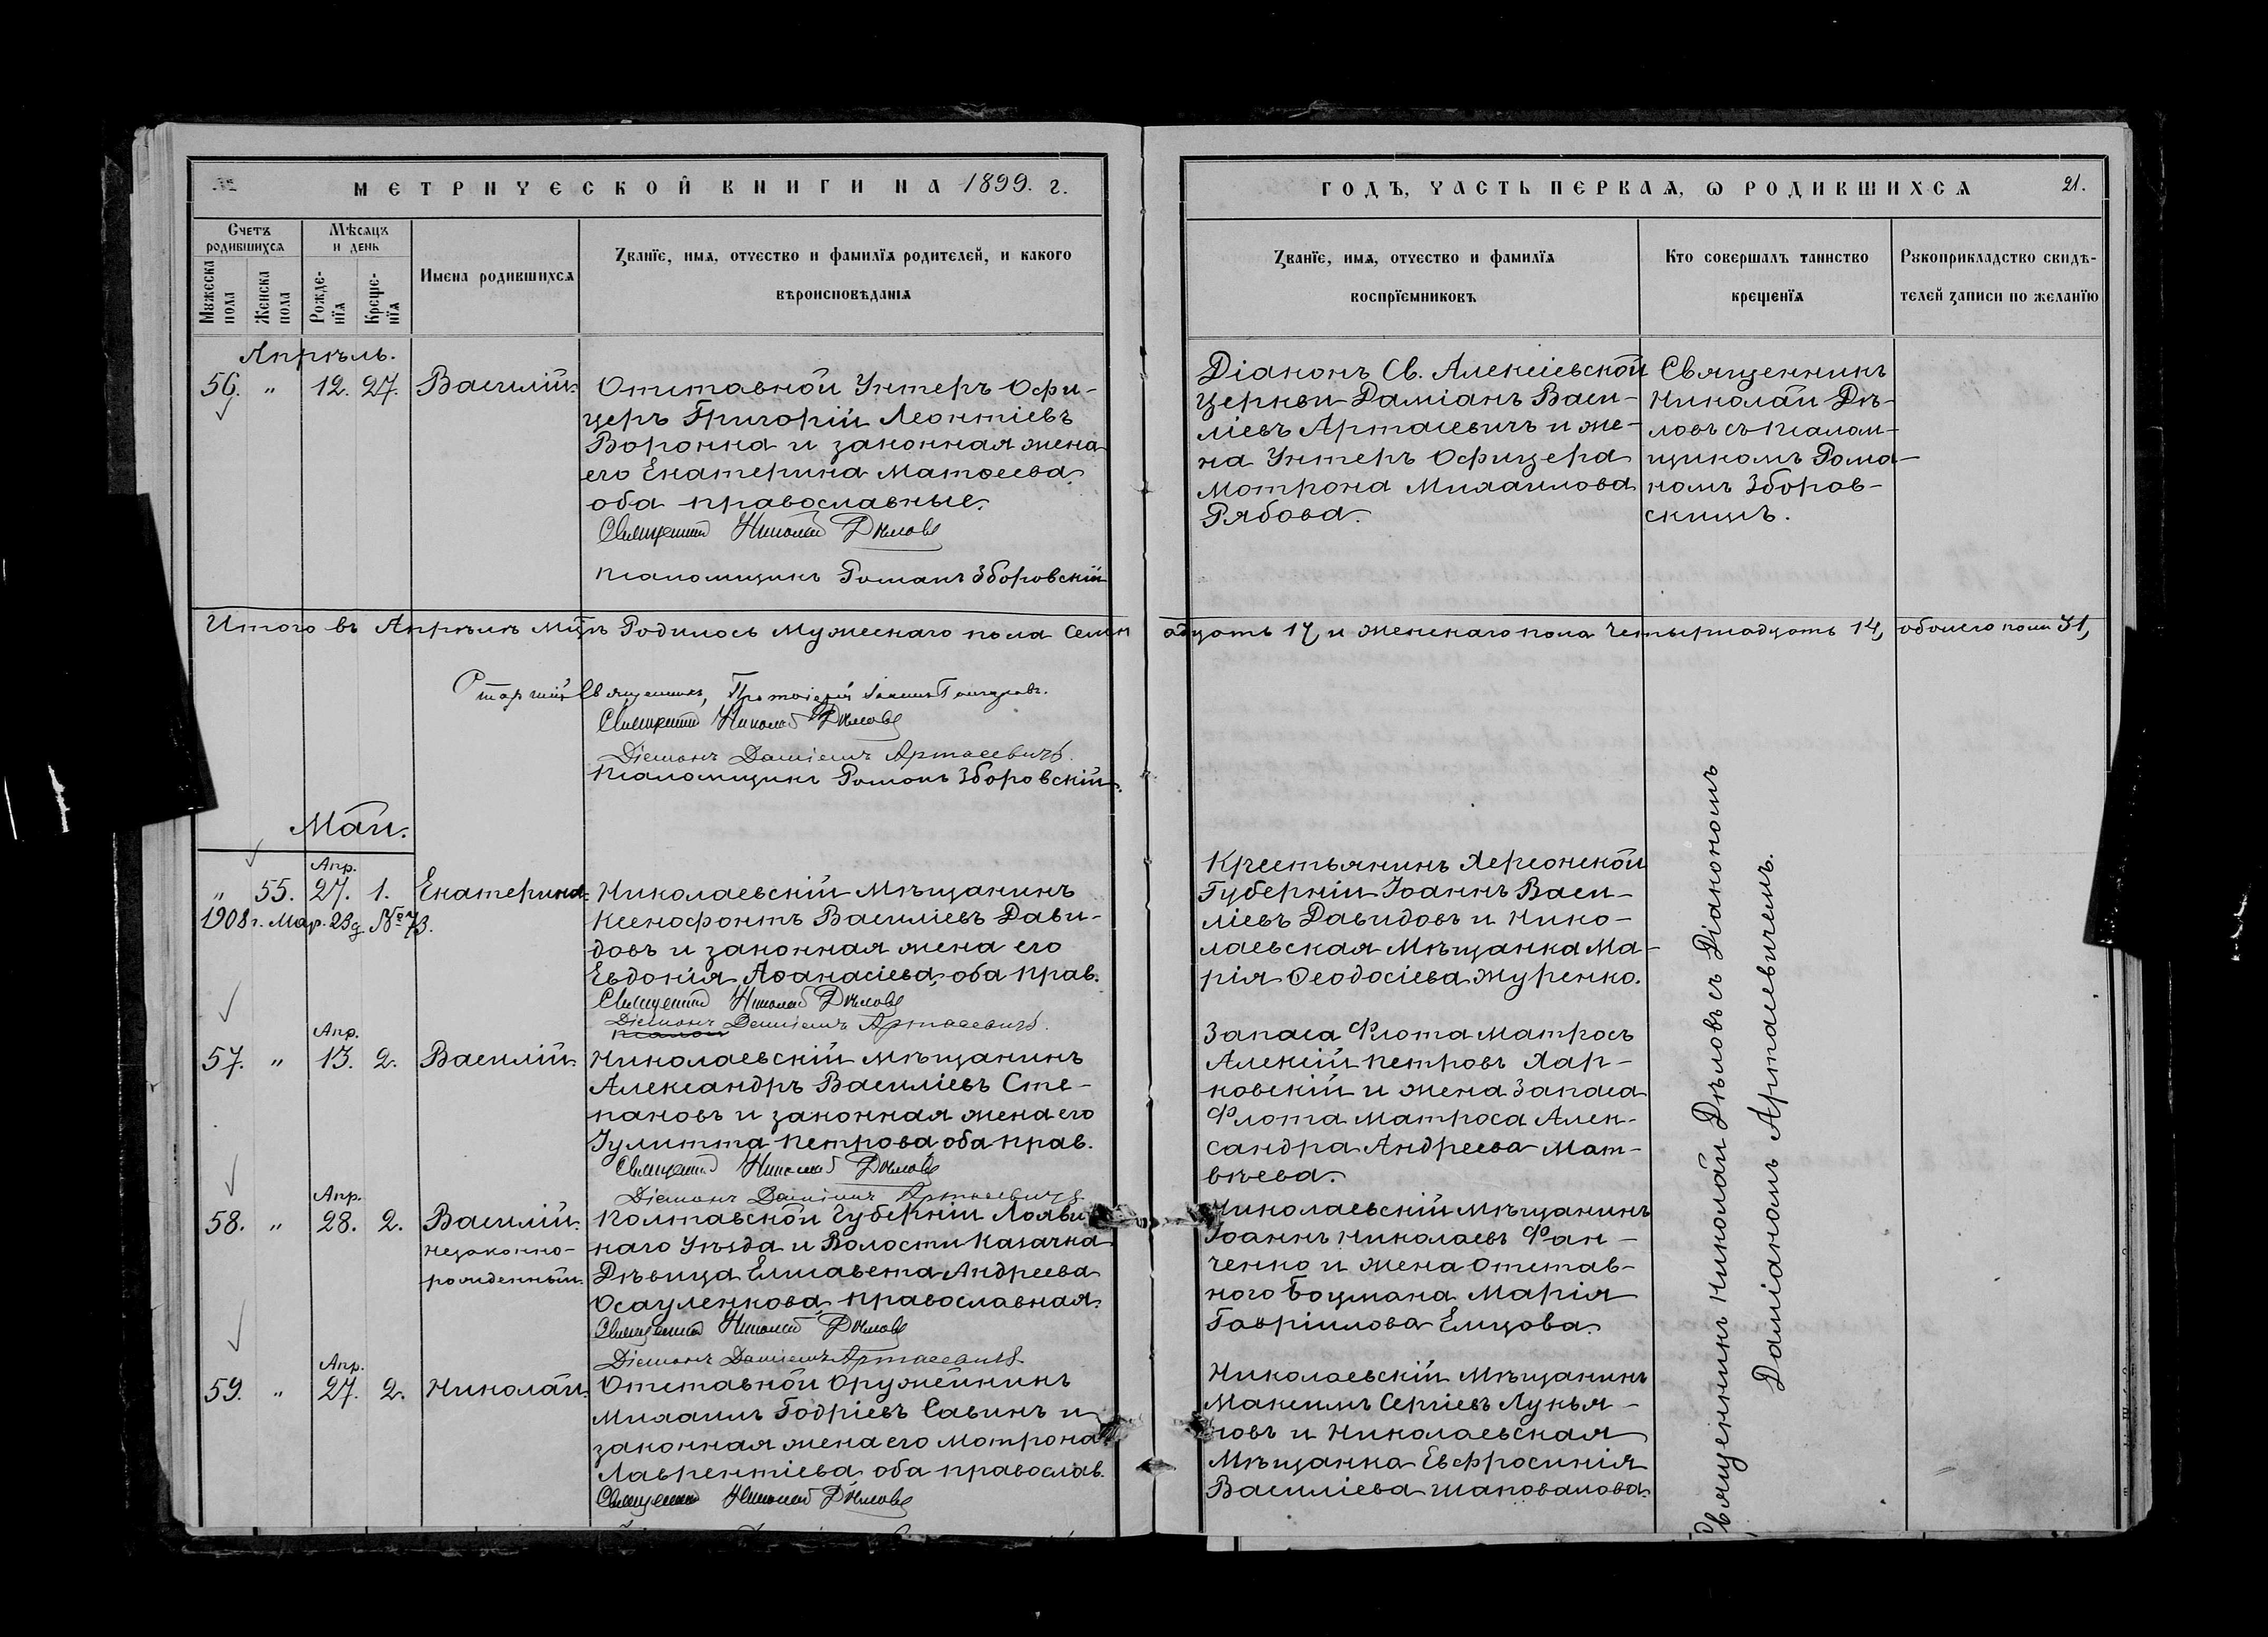 МЕТРИЧЕСКОЙ КНИГИ НА 1899. г.
Счетъ родившихся
Мѣсяцъ и день
Мужеска пола
Женска пола
Рожде-нїя
Креще-нїя
Имена родившихся
Званїе, имя, отчество и фамилїя родителей, и какого
вѣроисповѣданїя
Апрѣль.
56. " 12. 27. Василій.
Отставной Унтеръ Офи-
церъ Григорій Леонтіевъ
Воронка и законная жена
его Екатерина Матѳеева,
оба православные.
Священникъ Николай Дѣловъ
Псаломщикъ Романъ Зборовскій
Итого въ Апрѣлѣ мцѣ Родилось Мужескаго пола Семн
Старшій Священникъ, Протоіерей
Священникъ Николай Дѣловъ
Діаконъ Даміанъ Артасевичъ.
Псаломщикъ Романъ Зборовскій.
Май.
Апр.
" 55. 27. 1. Екатерина.
1908 г. Мар. 23 д. № 73.
Николаевскій Мѣщанинъ
Ксенофонтъ Василіевъ Дави-
довъ и законная жена его
Евдокія Аѳанасіева, оба прав.
Священникъ Николай Дѣловъ
Діаконъ Даміанъ Артасевичъ.
Апр.
57. " 13. 2. Василій.
Николаевскій Мѣщанинъ
Александръ Василіевъ Сте-
пановъ и законная жена его
Іулитта Петрова оба прав.
Священникъ Николай Дѣловъ
Діаконъ Даміанъ Артасевичъ
Апр.
58. " 28. 2. Василій.
незаконно-
рожденный.
Полтавской Губерніи Лохвиц
каго Уѣзда и Волости Казачка
Дѣвица Елисавета Андреева
Осауленкова, православная.
Священникъ Николай Дѣловъ
Діаконъ Даміанъ Артасевичъ
Апр.
59. " 27. 2. Николай.
Отставной Оружейникъ
Михаилъ Годріевъ Савинъ и
законная жена его Мотрона
Лаврентіева оба православ.
Священникъ Николай Дѣловъ
ГОДЪ, ЧАСТЬ ПЕРВАЯ, Ѡ РОДИВШИХСЯ
21.
Званїе, имя, отчество и фамилїя
воспрїемниковъ
Кто совершалъ таинство
крещенїя
Рукоприкладство свидѣ-
телей записи по желанїю
Діаконъ Св. Алексіевской
Церкви Даміанъ Васи-
ліевъ Артасевичъ и же-
на Унтеръ Офицера
Мотрона Михаилова
Рябова.
Священникъ
Николай Дѣ-
ловъ съ Псалом-
щикомъ Рома-
номъ Зборов-
скимъ.
адцать 17, и Женскаго пола Четырнадцать 14, обоего пола 31,
Крестьянинъ Херсонской
Губерніи Іоаннъ Васи-
ліевъ Давидовъ и Нико-
лаевская Мѣщанка Ма-
рія Ѳеодосіева Журенко.
Запаса Флота Матросъ
Алексій Петровъ Хар-
ковскій и жена Запаса
Флота Матроса Алек-
сандра Андреева Мат-
вѣева.
Николаевскій Мѣщанинъ
Іоаннъ Николаевъ Фан-
ченко и жена Отстав-
ного Боцмана Марія
Гавріилова Елцова.
Николаевскій Мѣщанинъ
Максимъ Сергіевъ Лукья-
новъ и Николаевская
Мѣщанка Евфросинія
Василіева Шаповалова.
Священникъ Николай Дѣловъ съ Діакономъ
Даміаномъ Артасевичемъ.